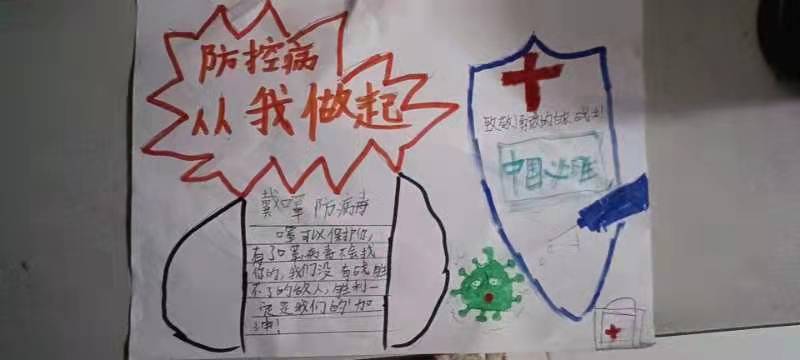 防控病
从我做起
戴口罩 防病毒
口罩可以保护你,
有了口罩病毒不会找
你的,我们没有战胜
不了的敌人,胜利一
定是我们的!加
油!
致敬
的白衣战士!
中国必胜